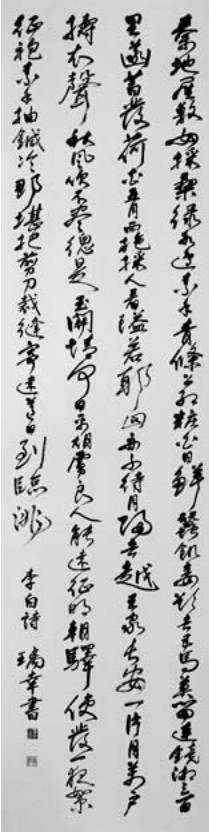 秦地羅敷女採桑綠水邊素手青條上紅粧白日鮮蠶飢妾欲去五馬莫留連鏡湖三百
里菡萏發荷花五月西施採人看隘若耶回舟不待月歸去越王家長安一片月萬戶
擣衣聲秋風吹不盡總是玉關情何日平胡虜良人罷遠征明朝驛使發一夜絮
征袍素手抽鍼冷那堪把剪刀裁縫寄遠道幾日到臨洮
李白詩 璃幸書